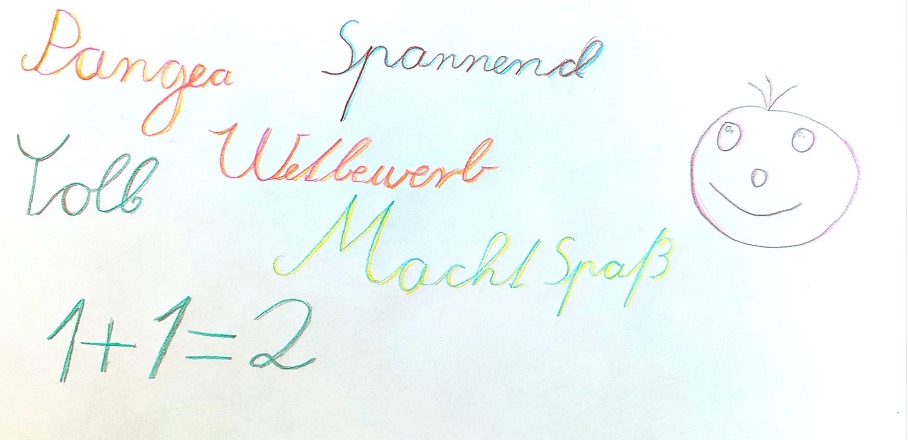 Pangea Spannend
Wettbewerb
Macht Spaß
1+1=2